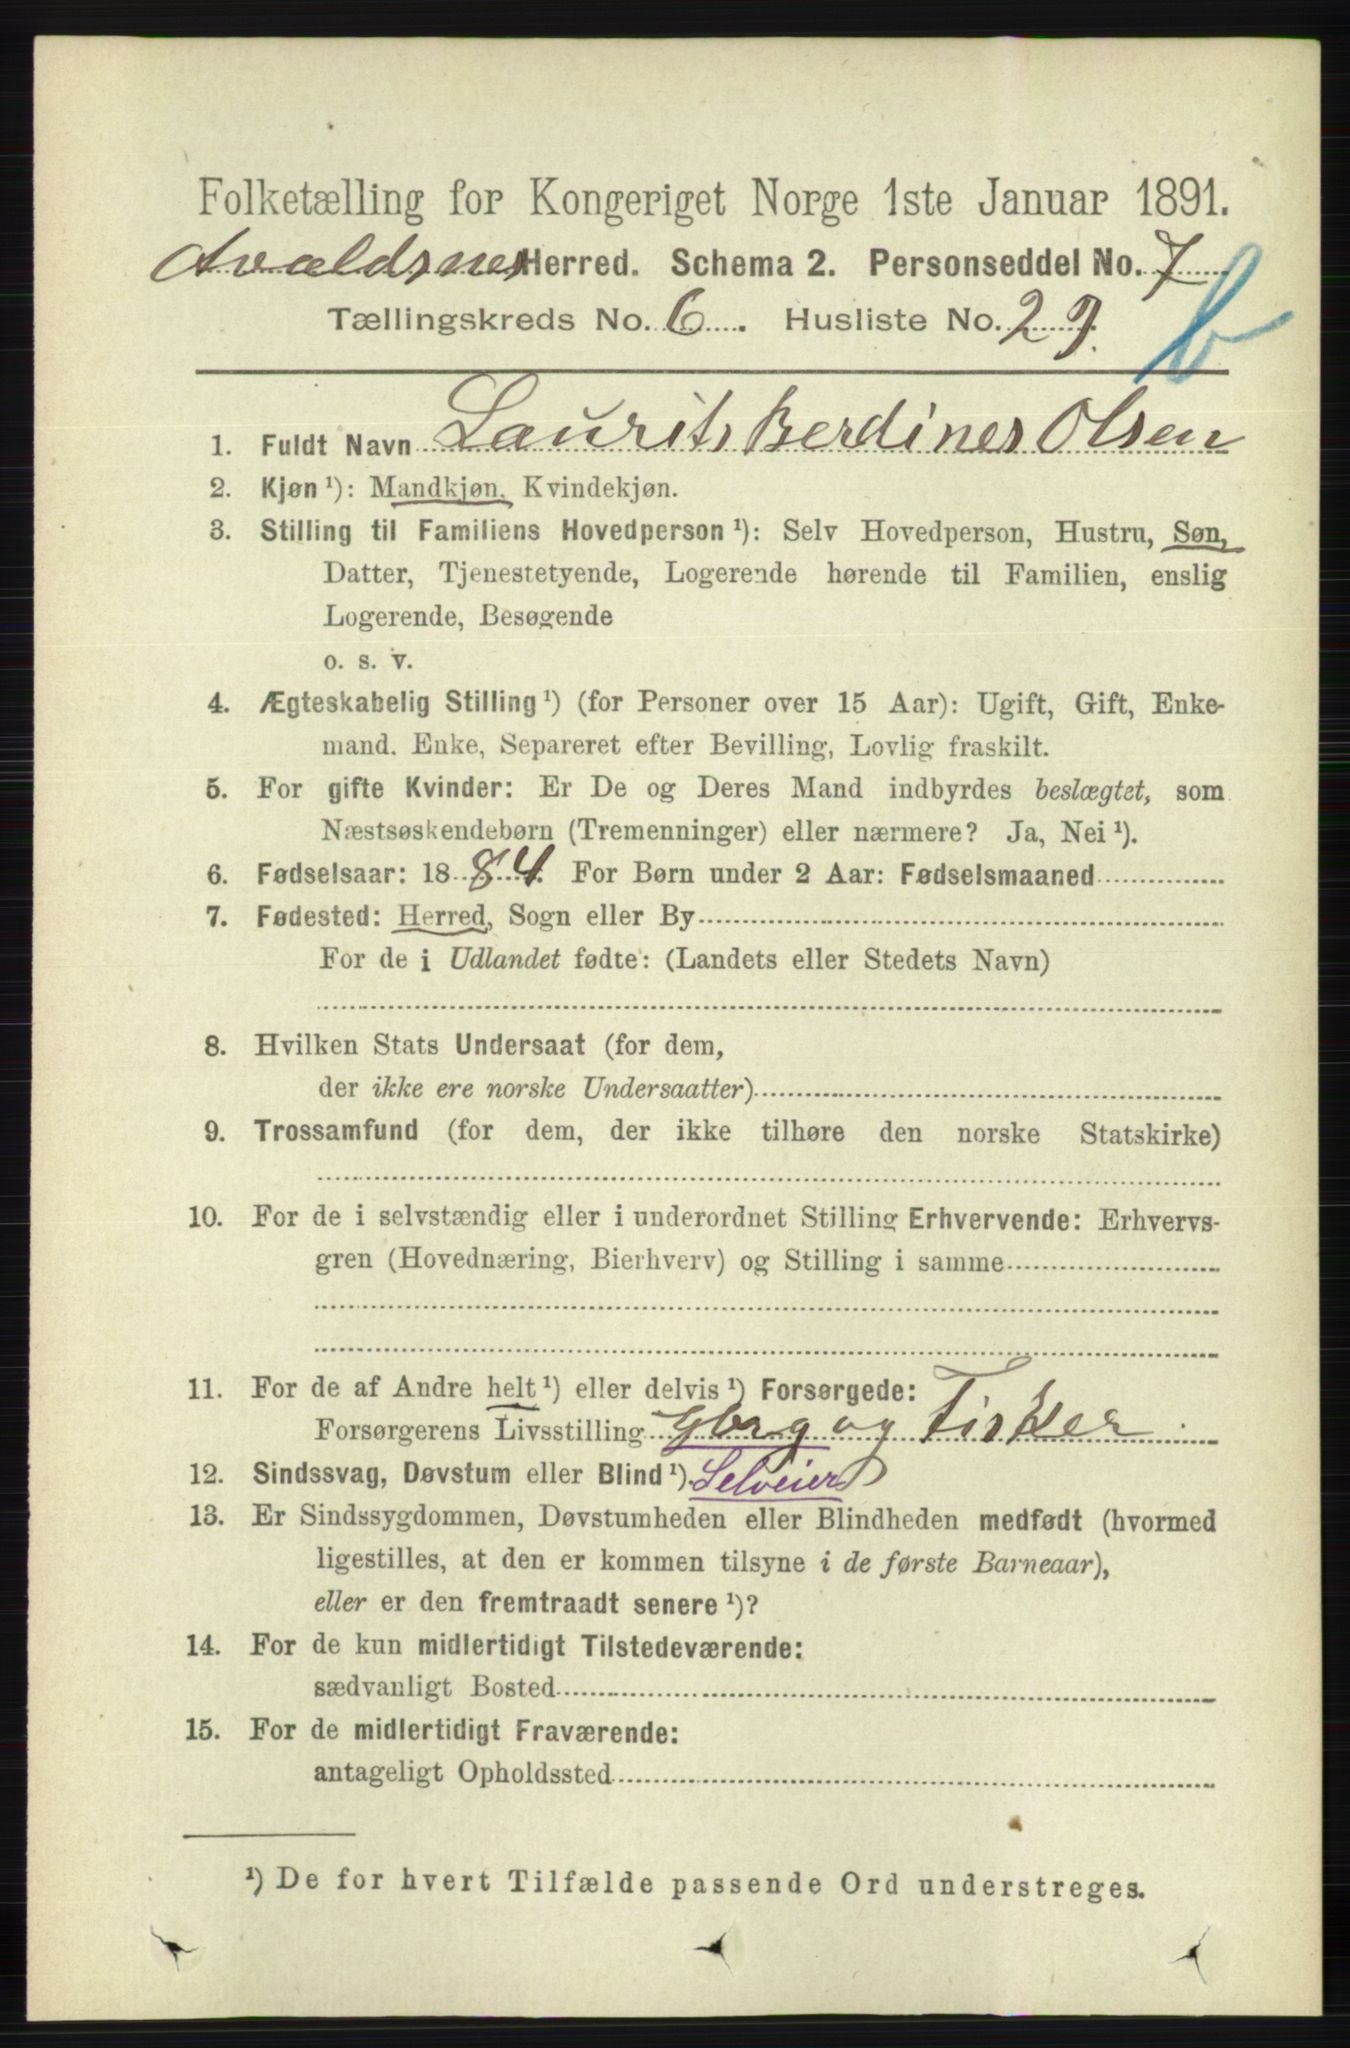 Folketælling for Kongeriget Norge 1ste Januar 1891.
Avaldsnes Herred. Schema 2. Personseddel No. 7
Tællingskreds No. 6. Husliste No. 29.
b
1. Fuldt Navn Laurits Berdines Olsen
2. Kjøn ¹): Mandkjøn, Kvindekjøn.
3. Stilling til Familiens Hovedperson ¹): Selv Hovedperson, Hustru, Søn,
Datter, Tjenestetyende, Logerende hørende til Familien, enslig
Logerende, Besøgende
o. s. v.
4. Ægteskabelig Stilling ¹) (for Personer over 15 Aar): Ugift, Gift, Enke-
mand, Enke, Separeret efter Bevilling, Lovlig fraskilt.
5. For gifte Kvinder: Er De og Deres Mand indbyrdes beslægtet, som
Næstsøskendebørn (Tremenninger) eller nærmere? Ja, Nei ¹).
6. Fødselsaar: 1884. For Børn under 2 Aar: Fødselsmaaned
7. Fødested: Herred, Sogn eller By
For de i Udlandet fødte: (Landets eller Stedets Navn)
8. Hvilken Stats Undersaat (for dem,
der ikke ere norske Undersaatter)
9. Trossamfund (for dem, der ikke tilhøre den norske Statskirke)
10. For de i selvstændig eller i underordnet Stilling Erhvervende: Erhvervs-
gren (Hovednæring, Bierhverv) og Stilling i samme
11. For de af Andre helt ¹) eller delvis ¹) Forsørgede:
Forsørgerens Livsstilling Gbrg og Fisker
12. Sindssvag, Døvstum eller Blind ¹). Selveier
13. Er Sindssygdommen, Døvstumheden eller Blindheden medfødt (hvormed
ligestilles, at den er kommen tilsyne i de første Barneaar),
eller er den fremtraadt senere ¹)?
14. For de kun midlertidigt Tilstedeværende:
sædvanligt Bosted
15. For de midlertidigt Fraværende:
antageligt Opholdssted
¹) De for hvert Tilfælde passende Ord understreges.